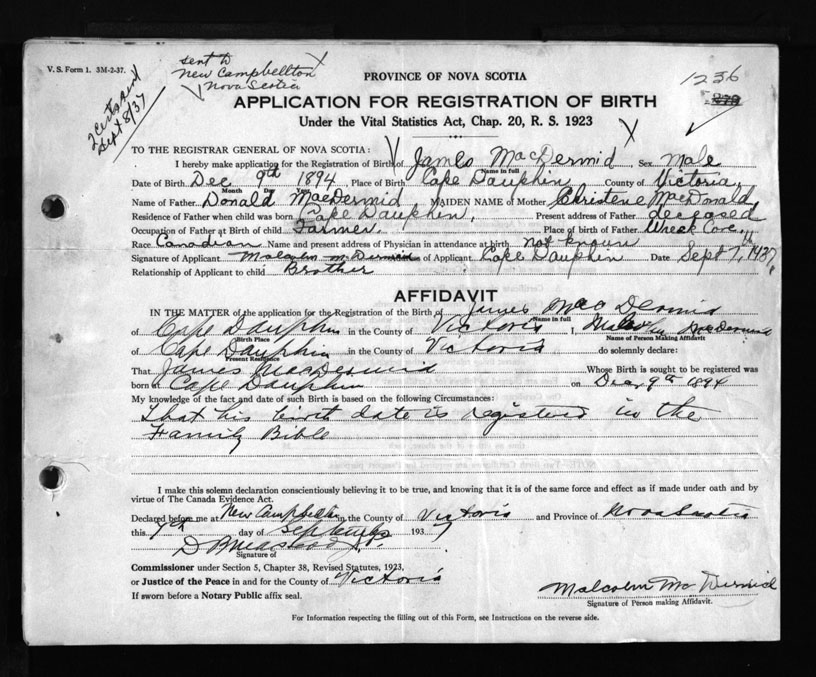 V. S. Form 1. 3M-2-37.
sent to
New Campbellton
Nova Scotia
2 certs sent
Sept 8/37
1236
PROVINCE OF NOVA SCOTIA
APPLICATION FOR REGISTRATION OF BIRTH
Under the Vital Statistics Act, Chap. 20, R. S. 1923
TO THE REGISTRAR GENERAL OF NOVA SCOTIA:
I hereby make application for the Registration of Birth of James MacDermid, Sex Male
Name in full
Date of Birth Dec 9th 1894 Place of Birth Cape Dauphin County of Victoria
Month Day Year
Name of Father Donald MacDermid MAIDEN NAME of Mother Christene MacDonald
Residence of Father when child was born Cape Dauphin, Present address of Father deceased
Occupation of Father at Birth of child Farmer. Place of birth of Father Wreck Cove,
Race Canadian Name and present address of Physician in attendance at birth not known
Signature of Applicant Malcolm McDermid of Applicant Cape Dauphin Date Sept 7, 1937,
Relationship of Applicant to child Brother
AFFIDAVIT
IN THE MATTER of the application for the Registration of the Birth of James MacDermid
Name in full
of Cape Dauphin in the County of Victoria I, MacDermid
Birth Place Name of Person Making Affidavit
of Cape Dauphin in the County of Victoria do solemnly declare:
Present Residence
That James MacDermid Whose Birth is sought to be registered was
born at Cape Dauphin on Dec, 9th 1894
My knowledge of the fact and date of such Birth is based on the following Circumstances:
that his birth date is registered in the
Family Bible
I make this solemn declaration conscientiously believing it to be true, and knowing that it is of the same force and effect as if made under oath and by
virtue of The Canada Evidence Act.
Declared before me at New Campbellton in the County of Victoria and Province of Nova Scotia
this 7th day of September 1937
Signature of
Commissioner under Section 5, Chapter 38, Revised Statutes, 1923,
or Justice of the Peace in and for the County of Victoria
If sworn before a Notary Public affix seal.
Malcolm McDermid
Signature of Person making Affidavit.
For Information respecting the filling out of this Form, see Instructions on the reverse side.